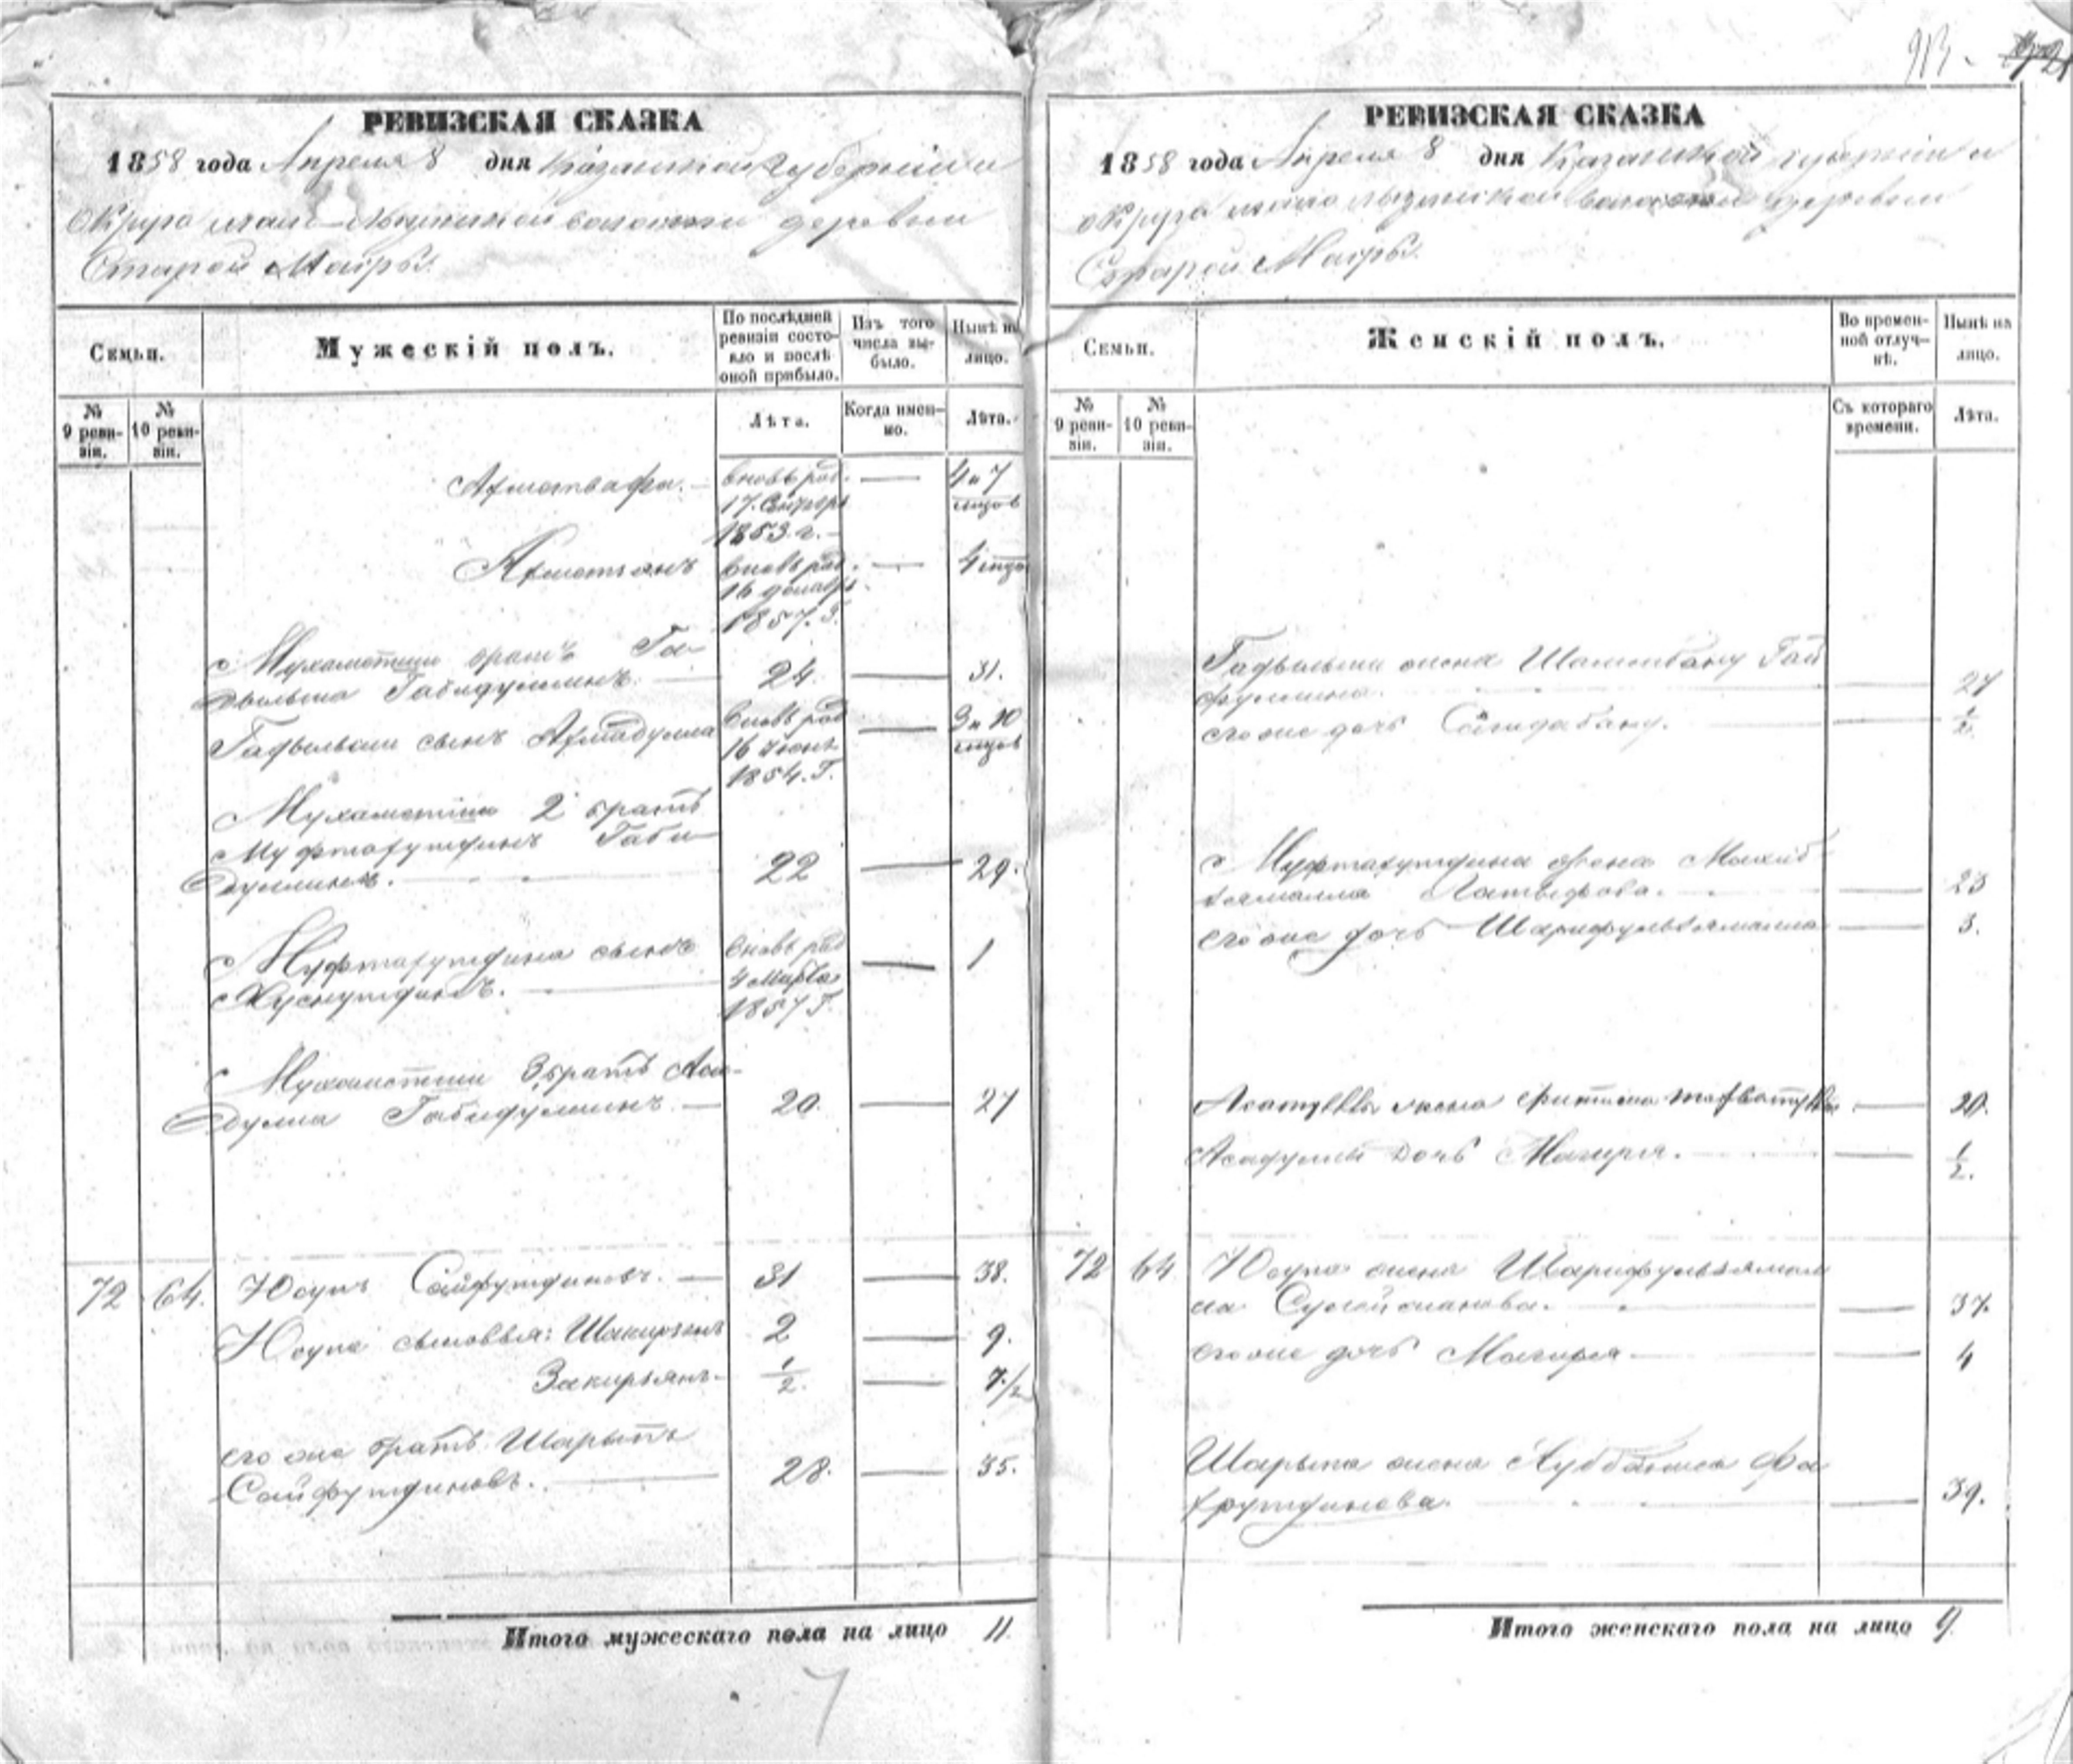 913.
РЕВИЗСКАЯ СКАЗКА
1858 года Апреля 8 дня Казанской губернии и
округа мало-лызинской волости деревни
Старой Масры
Семьи.
Мужескій полъ.
По послѣдней ревизіи состояло и послѣ оной прибыло.
Изъ того числа выбыло.
Нынѣ на лицо.
№ 9 ревизіи.
№ 10 ревизіи.
Лѣта.
Когда именно.
Лѣта.
Ахметвафа. вновь род. 17. Сентября 1853 г. — 4 и 7 мцов
Ахметзянъ вновь род. 16 декабря 1857. г. — 4 мцо
Мухаметши братъ Га-
Габидуллинъ. 24. — 31.
сынъ Ахмадулла вновь род 16 Июня 1854. г. — 3 и 10 мцов
Мухаметши 2 братъ
Муфтахутдинъ Габи-
дуллинъ. 22 — 29.
Муфтахутдина сынъ
Хуснутдинъ. вновь род 4 Марта 1857 г. — 1
Мухаметши 3 братъ Аса-
дулла Габидуллинъ. 20. — 27
72 64. Юсупъ Сайфутдиновъ. 31 — 38.
Юсупа сыновья: Шакирзянъ 2 — 9.
Закирьянъ 1/2. — 7 1/2
его же братъ Шарыпъ
Сайфутдиновъ. 28. — 35.
Итого мужескаго пола на лицо 11.
РЕВИЗСКАЯ СКАЗКА
1858 года Апреля 8 дня Казанской губерніи и
округа мало лызинской волости деревни
Старой Масры
Семьи.
Женскій полъ.
Во временной отлучкѣ.
Нынѣ на лицо.
№ 9 ревизіи.
№ 10 ревизіи.
Съ котораго времени.
Лѣта.
жена Шамсибану Гай
фуллина. — 27
его же дочь Саидабану. — 1/2.
Муфтахутдина жена
Латыфова. — 23
его же дочь Шарифульзямалла — 3.
жена — 20.
Асадуллы дочь Магиря. — 1/2.
72 64 Юсупа жена Шарифульзямал
ла Сулейманова. — 37.
его же дочь Магиря — 4
Шарыпа жена Хуббниса Фа
хрутдинова. — 39.
Итого женскаго пола на лицо 9